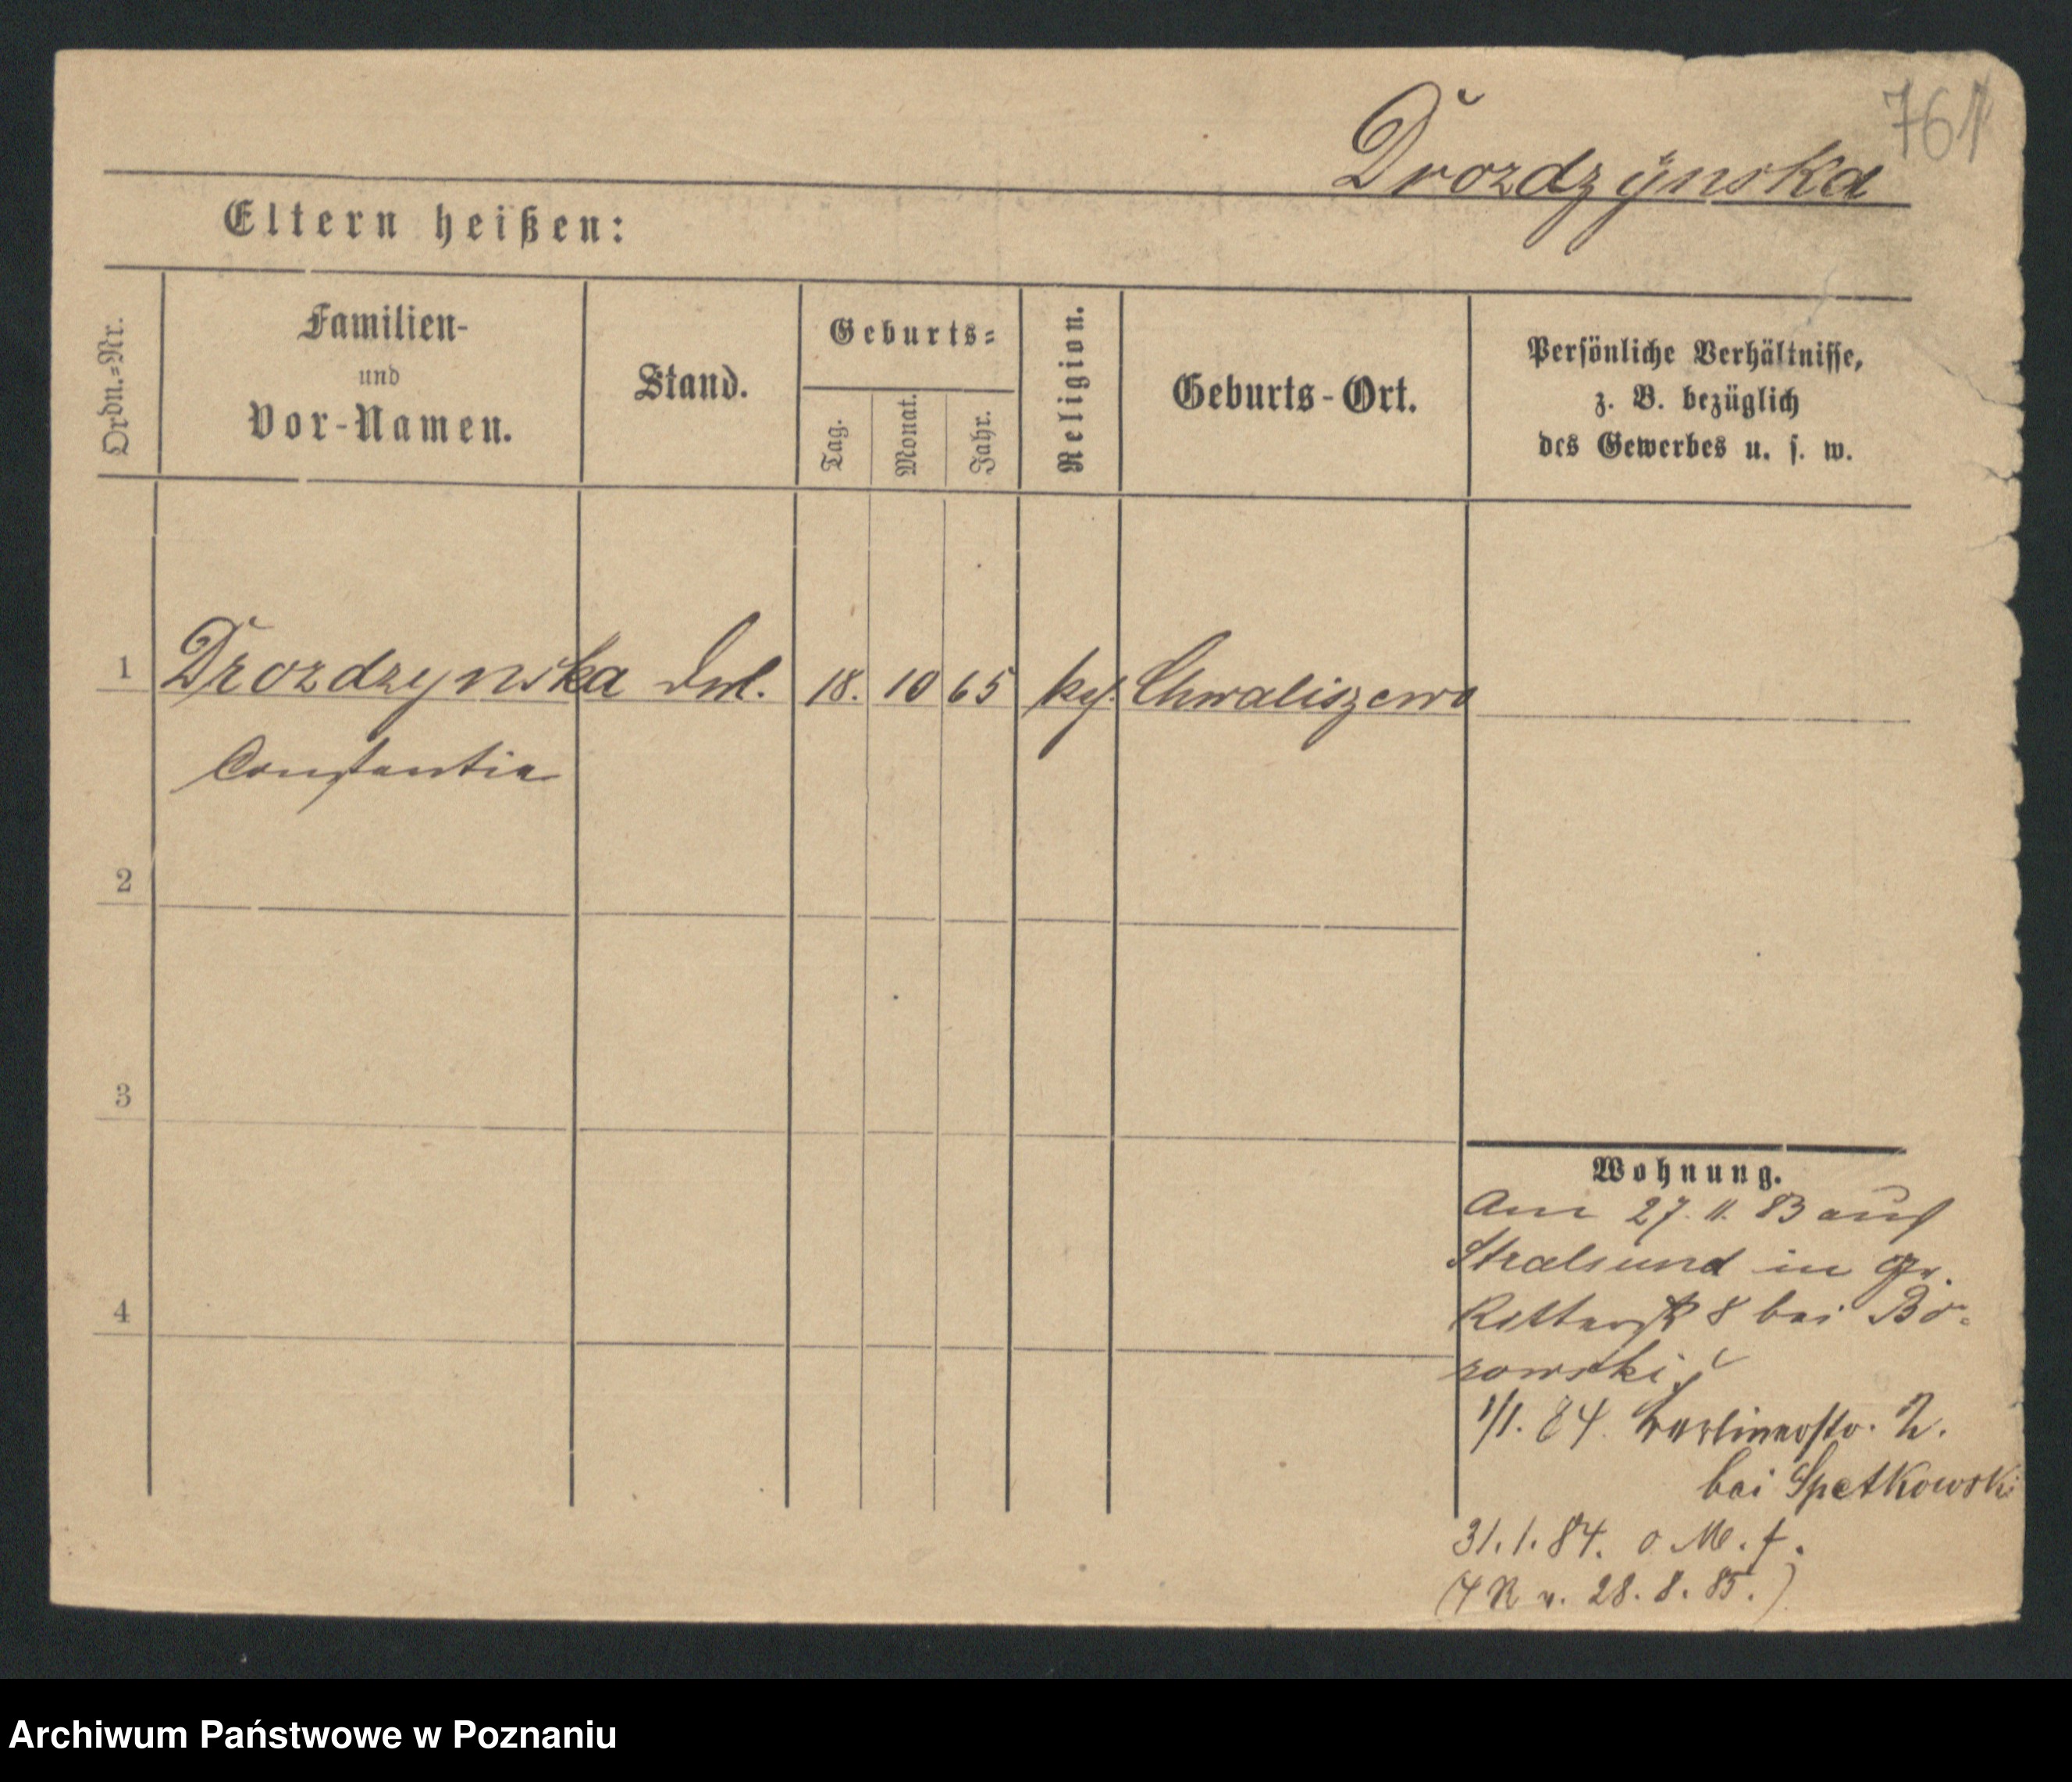 761
Drozdzynska
Eltern heißen:
Ordn.=Nr.
Familien-
und
Vor-Namen.
Stand.
Geburts=
Tag.
Monat.
Jahr.
Religion.
Geburts-Ort.
Persönliche Verhältnisse,
z. B. bezüglich
des Gewerbes u. s. w.
1 Drozdzynska 18. 10 65 Chwaliszewo
Constantia
2
3
4
Wohnung.
Am 27. 11. 83 aus
Stralsund in Gr.
Ritterstr 8 bei Bo-
rowski
1/1. 84. Berlinerstr. 2.
bei Spetkowski
31. 1. 84. o M. f.
(4 R v. 28. 8. 85.)
Archiwum Państwowe w Poznaniu